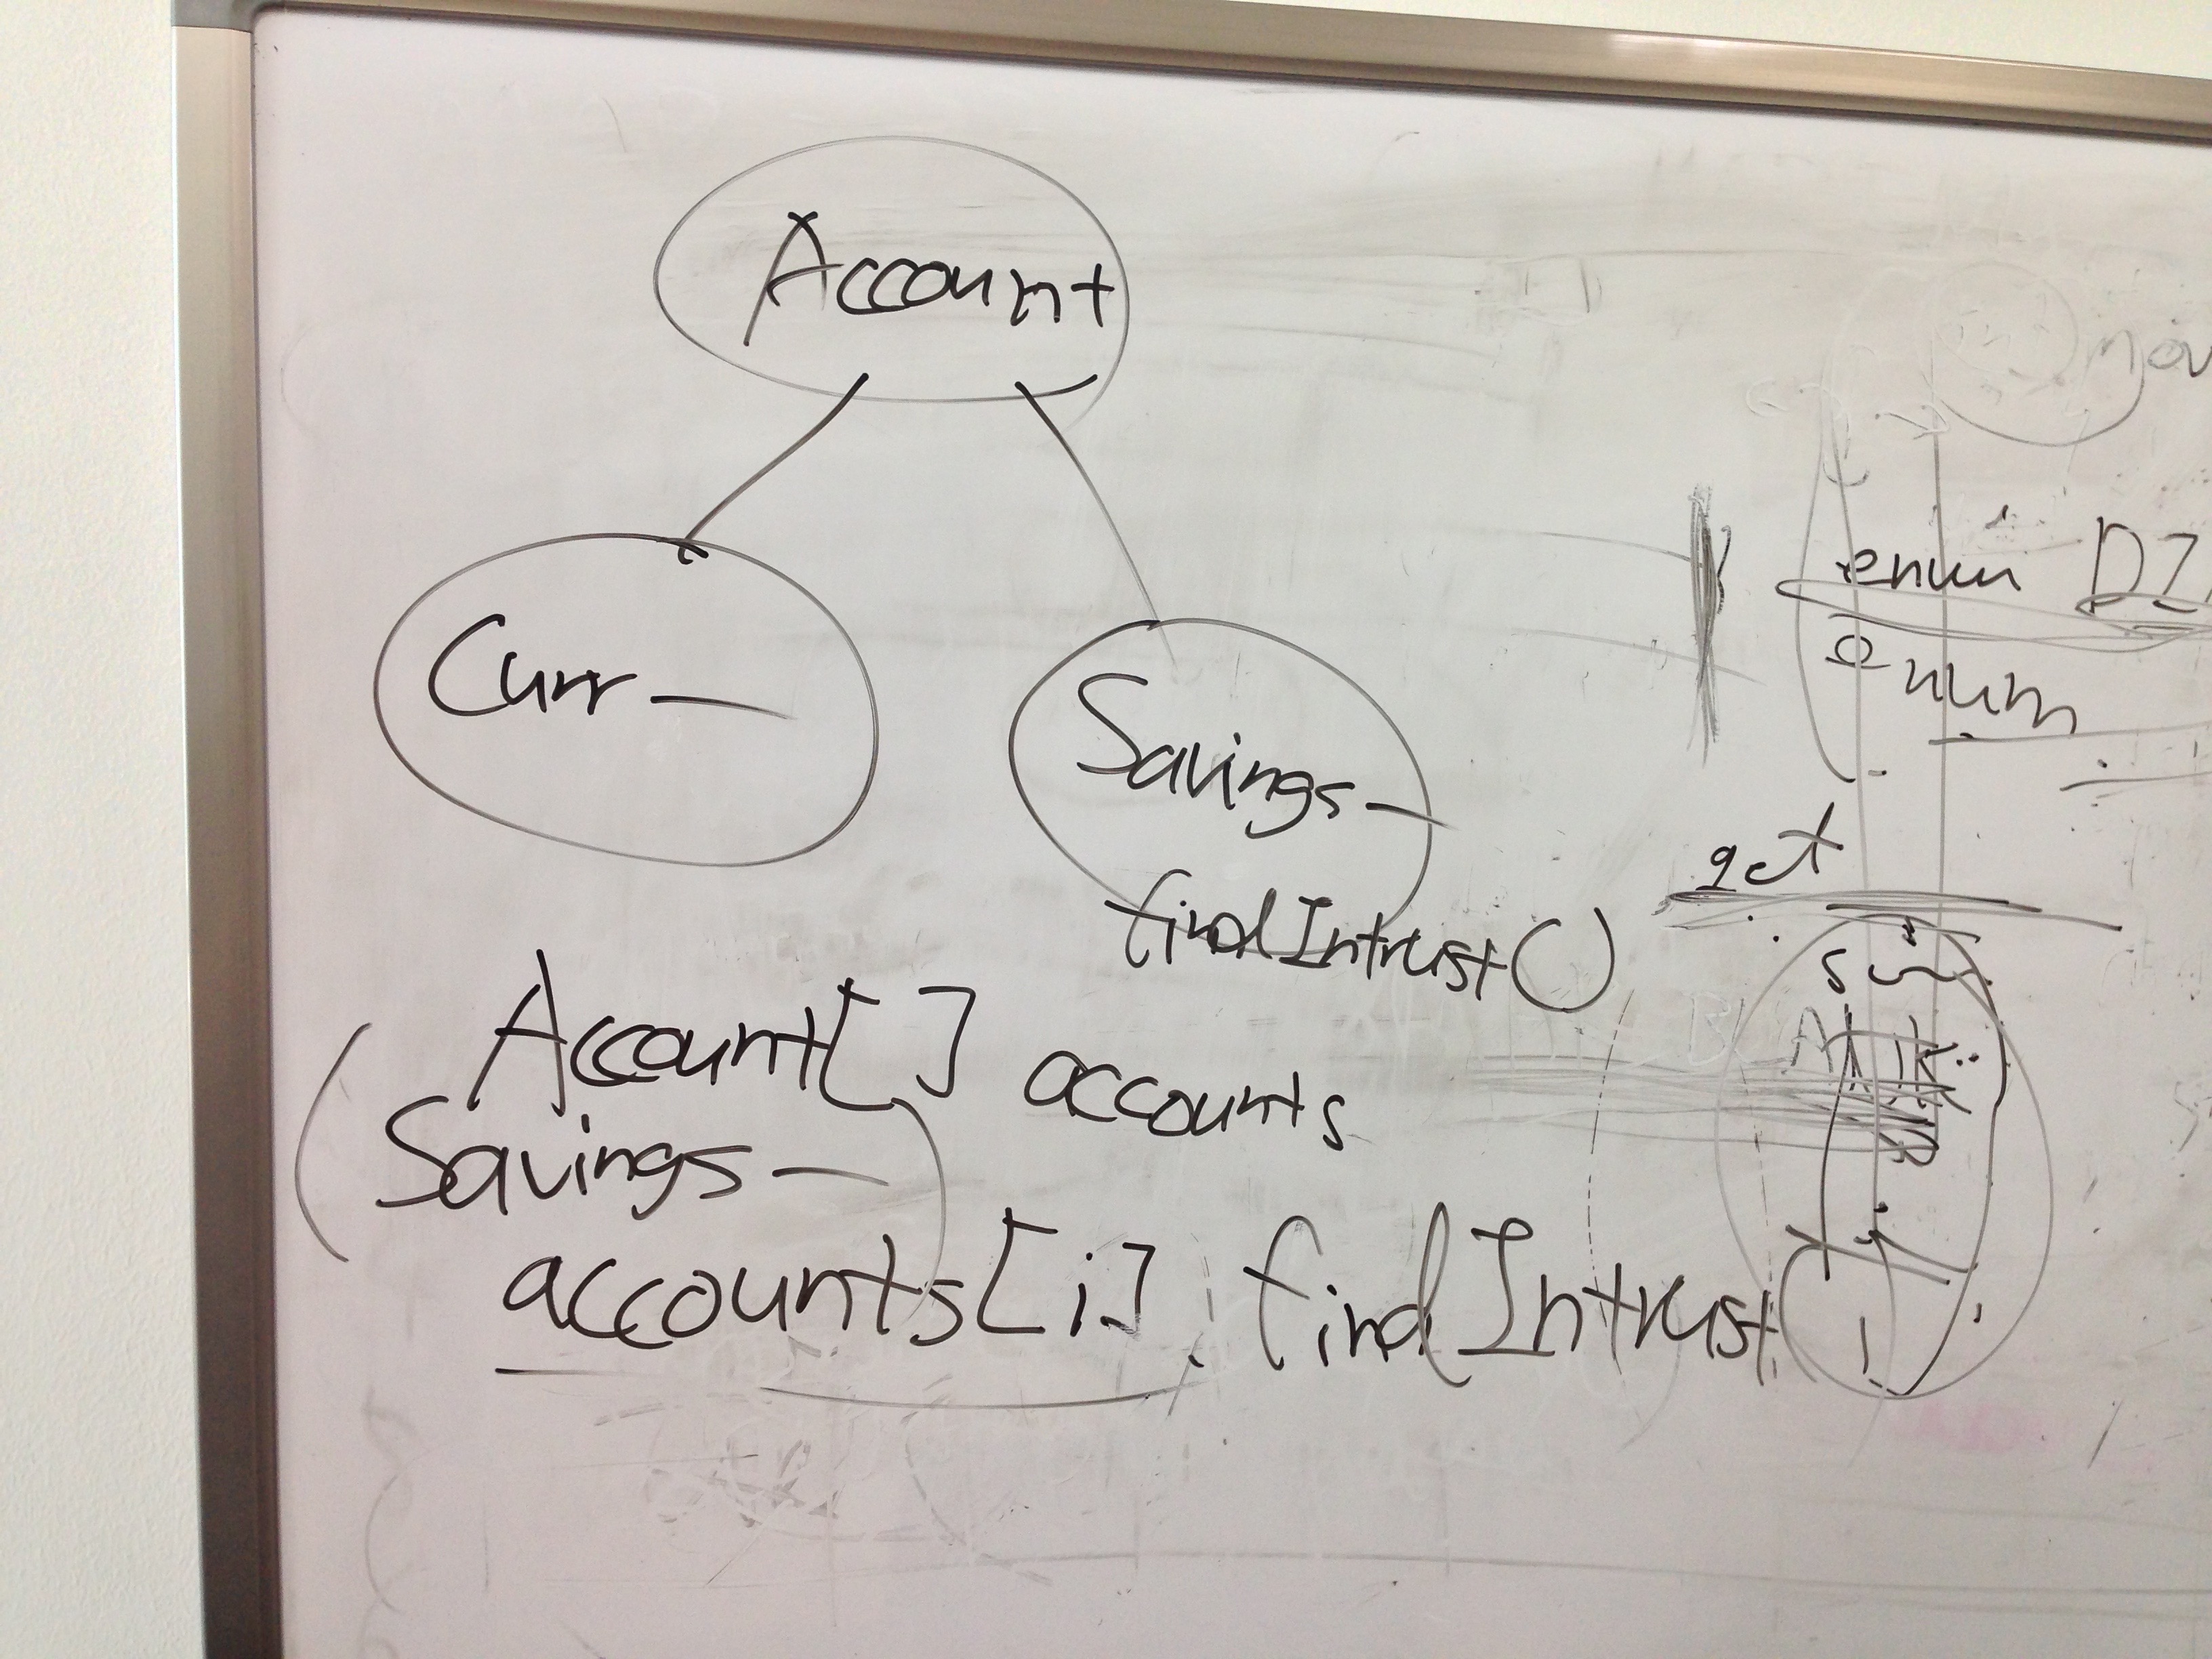 Account
Curr—
Savings—
findIntrust()
Account[] accounts
(Savings—)
accounts[i].findIntrust()
enum
enum
get